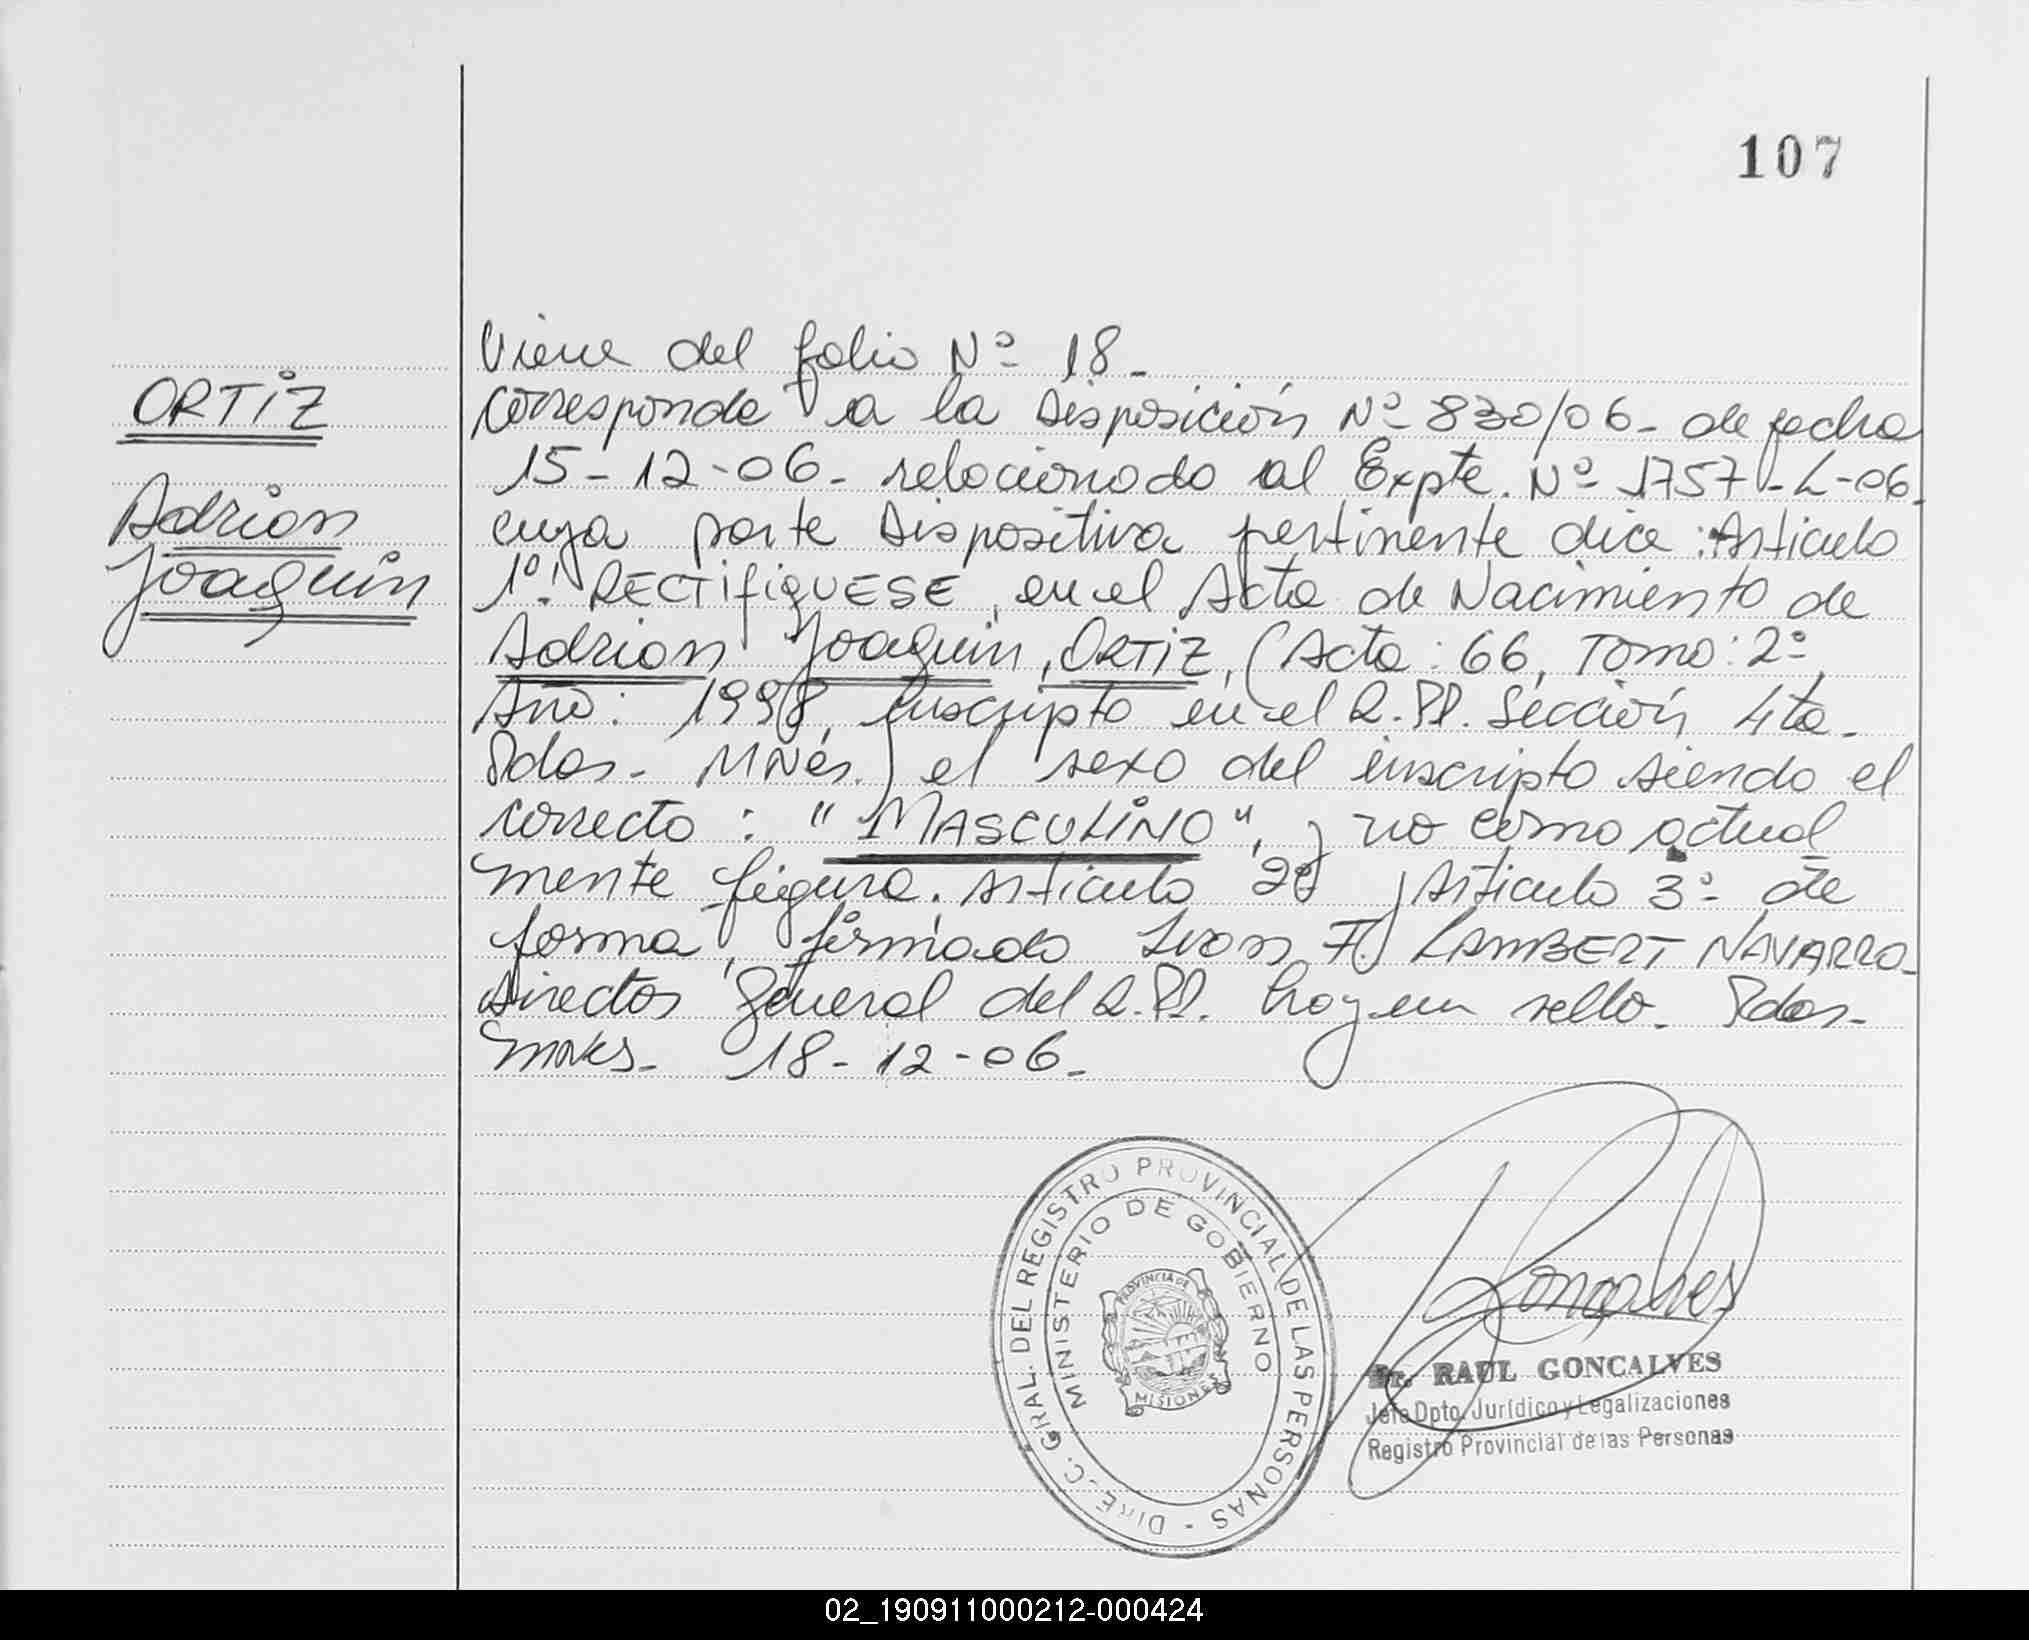 107
ORTIZ
Adrian
Joaquin
Viene del folio Nº 18-
Corresponde a la Disposición Nº 830/06- de fecha
15-12-06- relacionado al Expte. Nº 1757-L-06-
cuya parte Dispositiva pertinente dice: Articulo
1º: RECTIFIQUESE, en el Acta de Nacimiento de
Adrian Joaquin, ORTIZ, (Acta: 66, Tomo: 2º,
Año: 1998, inscripto en el R.PP. Sección 4ta-
Pdas- MNes.) el sexo del inscripto siendo el
correcto: "MASCULINO", y no como actual
mente figura. Articulo 2º y Articulo 3º- de
forma, firmado Ivan F. LAMBERT NAVARRO-
Director General del R.PP. hay un sello. Pdas-
Mnes- 18-12-06-
DIREC. GRAL. DEL REGISTRO PROVINCIAL DE LAS PERSONAS -
MINISTERIO DE GOBIERNO
PROVINCIA DE
MISIONES
Goncalves
Dr. RAUL GONCALVES
Jefe Dpto. Jurídico y Legalizaciones
Registro Provincial de las Personas
02_190911000212-000424